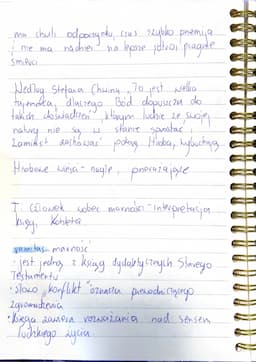 ma chwili odpoczynku, czas szybko przemija
i nie ma nadziei na lepsze jutro i pragnie
śmierci
Według Stefana Chwina "To jest wielka
tajemnica, dlaczego Bóg dopuszcza do
takich doświadczeń, którym ludzie ze swojej
natury nie są w stanie sprostać."
Zamiast zachować pokorę Hioba, wybuchają
Hiobowe wieści - nagłe, przerażające
T: Człowiek wobec marności - interpretacja
księgi Koheleta.
vanitas - marność
• jest jedną z ksiąg dydaktycznych Starego
Testamentu
• słowo kohelet oznacza przewodniczącego
zgromadzenia
• Księga zawiera rozważania nad sensem
ludzkiego życia